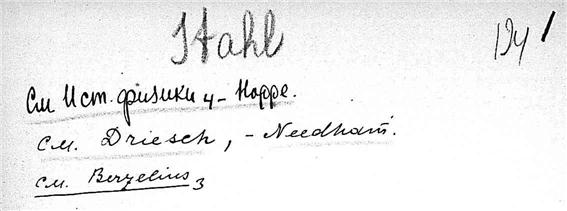 Stahl
См Ист. физики 4 - Норре.
См. Driesch, - Needham.
см. Berzelius 3